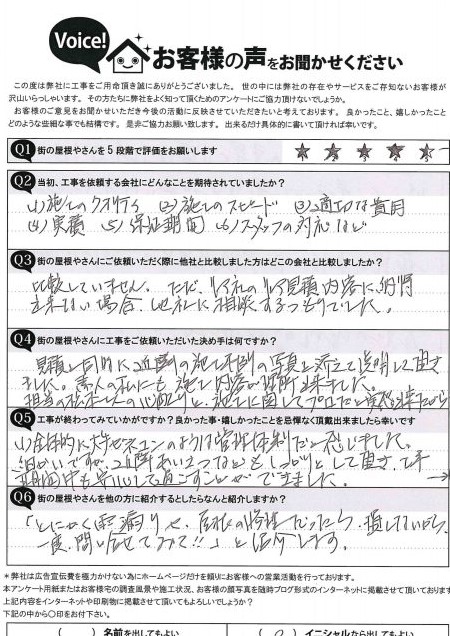 Voice! お客様の声をお聞かせください
この度は弊社に工事をご用命頂き誠にありがとうございました。世の中には弊社の存在やサービスをご存知ないお客様が
沢山いらっしゃいます。その方たちに弊社をよく知って頂くためのアンケートにご協力頂けないでしょうか。
お客様のご意見をお聞かせいただき今後の活動に反映させていただきたいと考えております。良かったこと、嬉しかったこと
どのような些細な事でも結構です。是非ご協力お願い致します。出来るだけ具体的に書いて頂ければ幸いです。
Q1 街の屋根やさんを5段階で評価をお願いします
Q2 当初、工事を依頼する会社にどんなことを期待されていましたか?
(1) 施工のクオリティ (2) 施工のスピード (3) 適切な費用
(4) 実績 (5) 保証期間 (6) スタッフの対応など
Q3 街の屋根やさんにご依頼いただく際に他社と比較しました方はどこの会社と比較しましたか?
比較していません。ただ、の見積内容に納得
出来ない場合、他社に相談するつもりでした。
Q4 街の屋根やさんに工事をご依頼いただいた決め手は何ですか?
見積と同時に近隣の施工事例の写真を添えて説明して頂き
ました。素人の私にも施工内容が理解出来ました。
担当の心配りと、施工に関してプロだと
Q5 工事が終わってみていかがですか?良かった事・嬉しかったことを忌憚なく頂戴出来ましたら幸いです
(1) 全体的に大手ゼネコンのような管理体制だと感じました。
細かいですが、近隣あいさつなどもしっかりとして頂き、工事
期間中も安心して過ごすことができました。
Q6 街の屋根やさんを他の方に紹介するとしたらなんと紹介しますか?
「とにかく雨漏りや、屋根の修理だったら、損しないから、
一度、問い合せてみて!!」と紹介します。
*弊社は広告宣伝費を極力かけない為にホームページだけを頼りにお客様への営業活動を行っております。
本アンケート用紙またはお客様宅の調査風景や施工状況、お客様の顔写真を随時ブログ形式のインターネットに掲載させて頂いております
上記内容をインターネットや印刷物に掲載させて頂いてもよろしいでしょうか?
下記の中から○印をお付下さい。
( ) 名前を出してもよい (○) イニシャルなら出してもよい